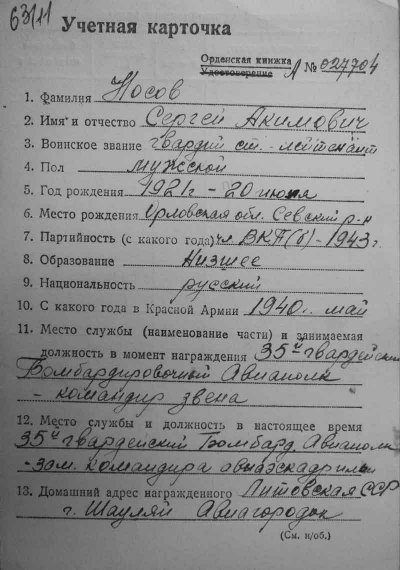 63/11
Учетная карточка
Орденская книжка
Удостоверение А № 027704
1. Фамилия Носов
2. Имя и отчество Сергей Акимович
3. Воинское звание гвардии ст. лейтенант
4. Пол мужской
5. Год рождения 1921г - 20 июня
6. Место рождения Орловская обл. Севский р-н
7. Партийность (с какого года) чл ВКП(б) - 1943г.
8. Образование Низшее
9. Национальность русский
10. С какого года в Красной Армии 1940г. май
11. Место службы (наименование части) и занимаемая
должность в момент награждения 35й гвардейский
Бомбардировочный Авиаполк
- командир звена
12. Место службы и должность в настоящее время
35й гвардейский Бомбард. Авиаполк
- зам. командира авиаэскадрильи
13. Домашний адрес награжденного Литовская ССР
г. Шауляй Авиагородок
(См. н/об.)